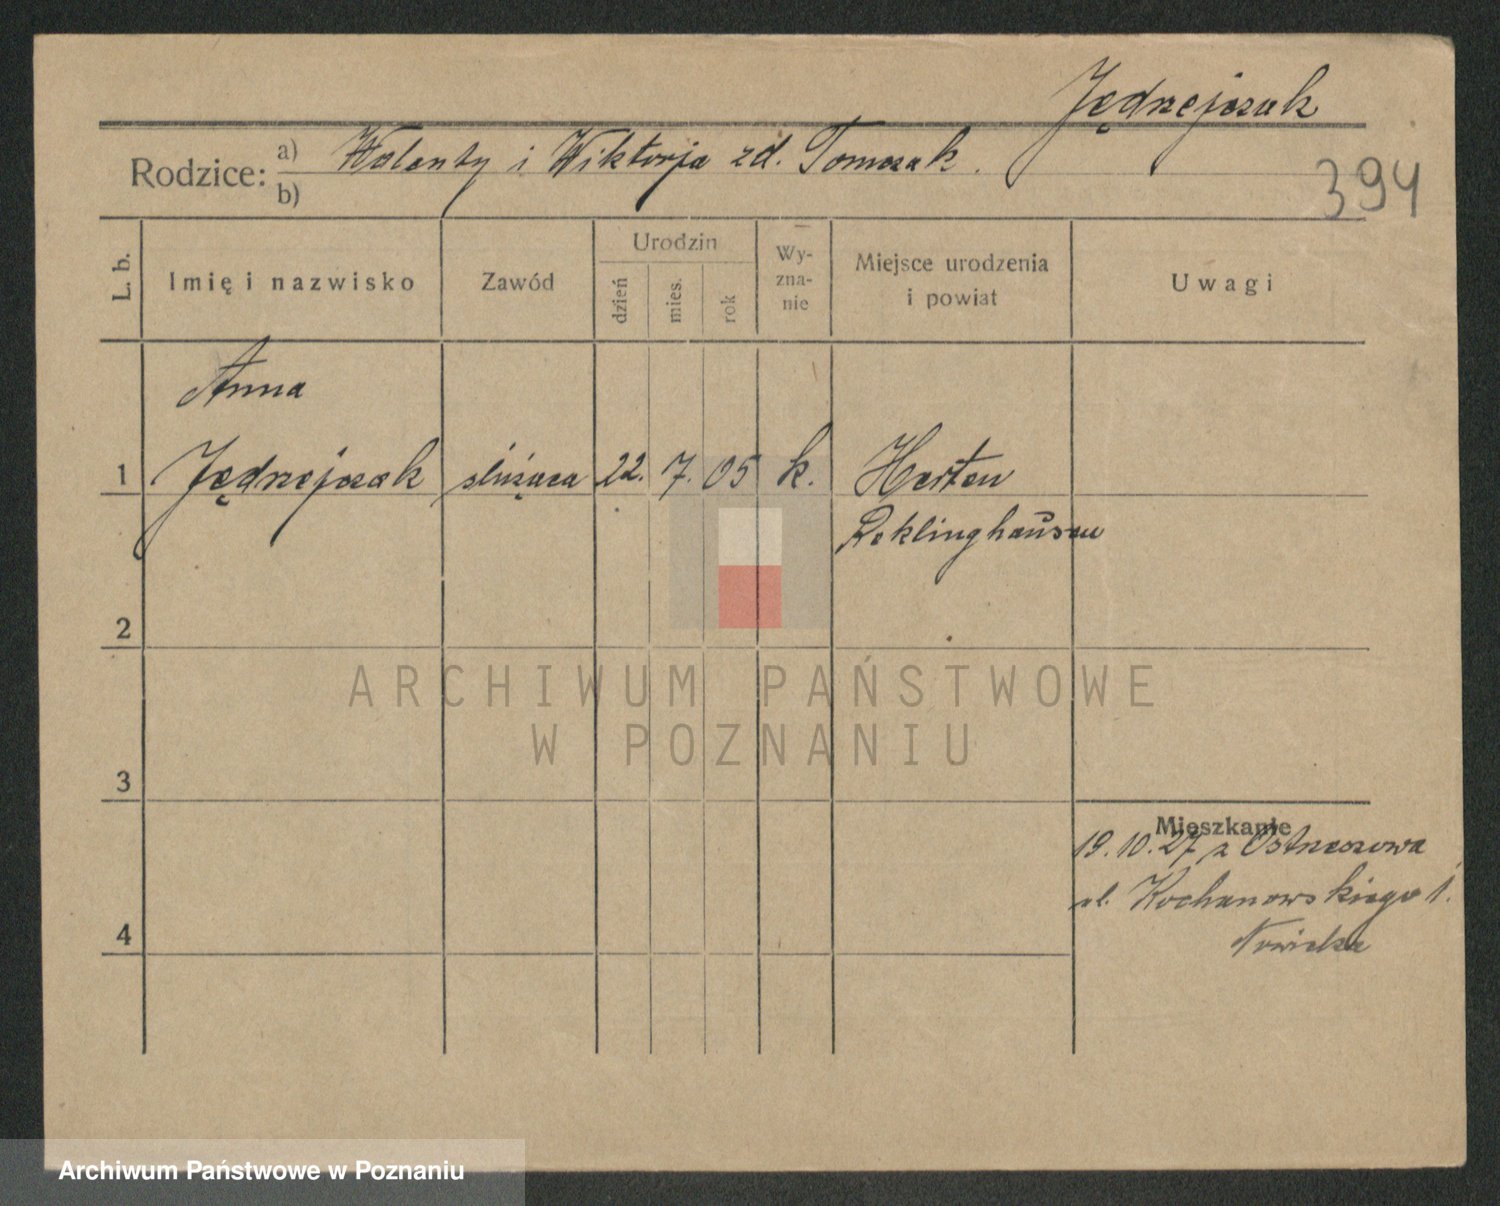 Jędrzejczak
Rodzice: a) Walenty i Wiktorja zd. Tomczak.
b)
394
L. b.
Imię i nazwisko
Zawód
Urodzin
dzień
mies.
rok
Wy-
zna-
nie
Miejsce urodzenia
i powiat
Uwagi
Anna
1 Jędrzejczak służąca 22. 7. 05 k. Herten
Reklinghausen
2
3
4
Mieszkanie
19.10.27 z Ostrzeszowa
ul. Kochanowskiego 1.
Nowicka
ARCHIWUM PAŃSTWOWE
W POZNANIU
Archiwum Państwowe w Poznaniu